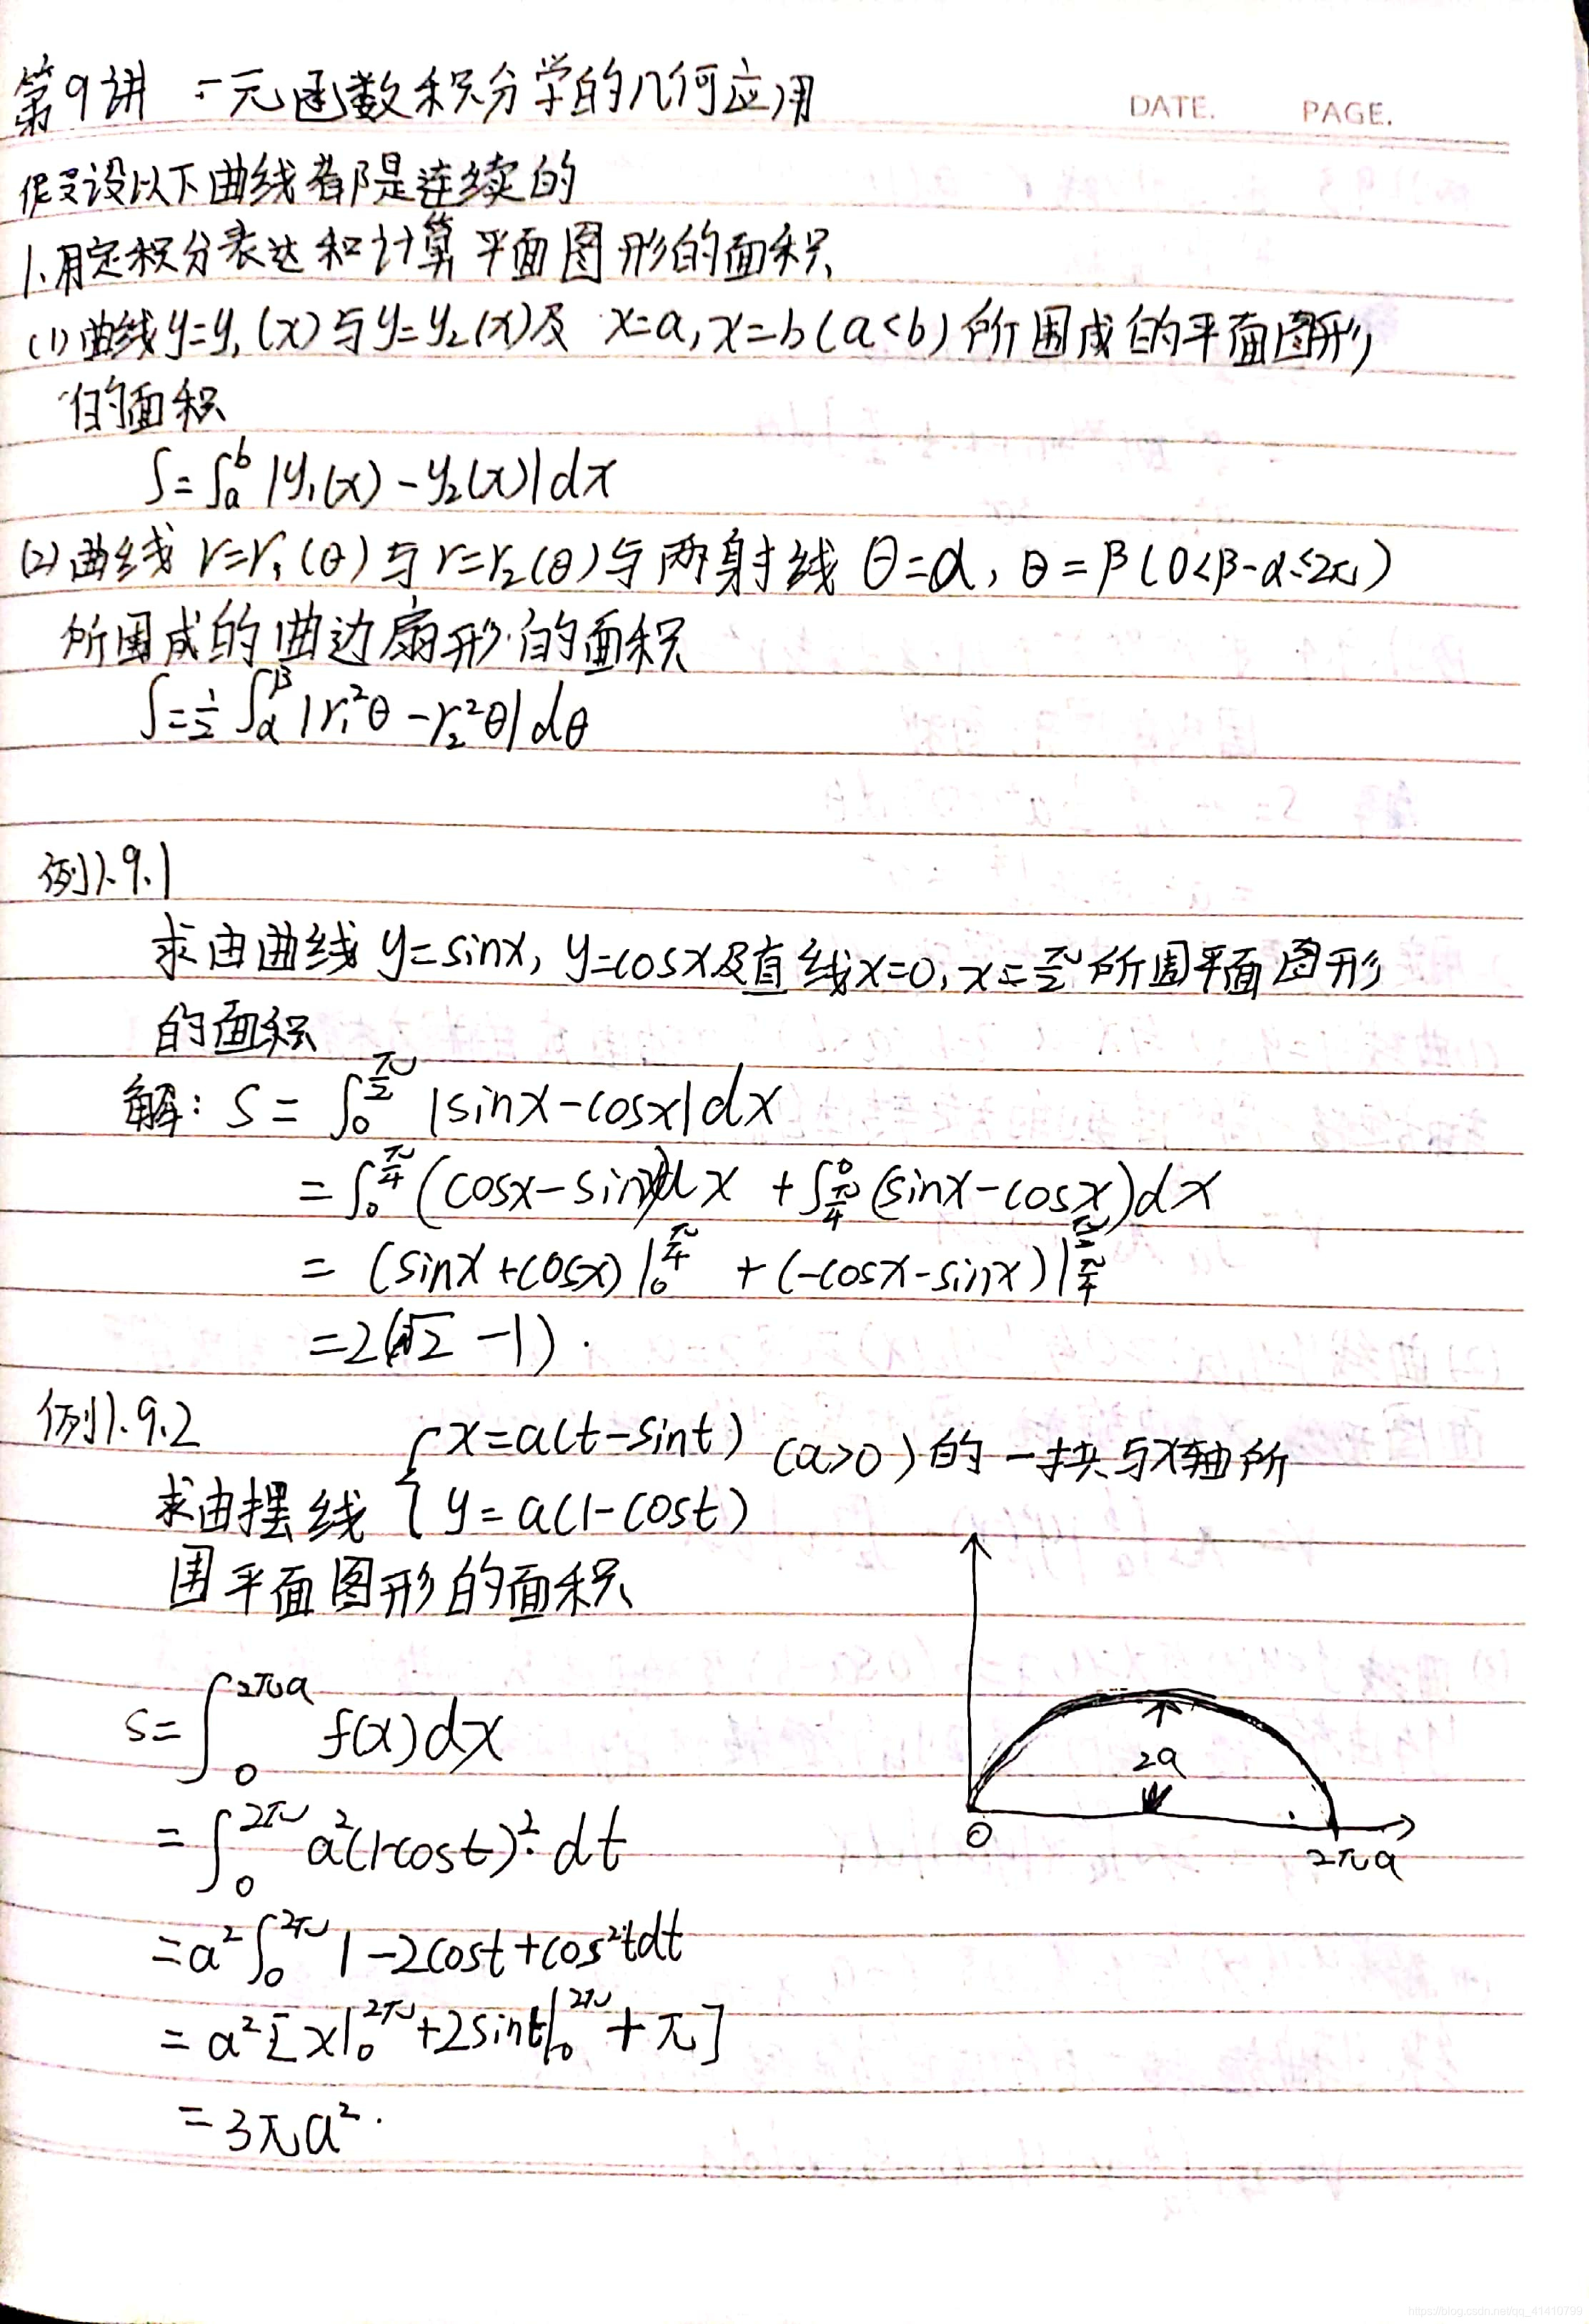 DATE. PAGE.
第9讲 一元函数积分学的几何应用
假设以下曲线都是连续的
1.用定积分表达和计算平面图形的面积
(1)曲线y=y₁(x)与y=y₂(x)及 x=a,x=b(a<b)所围成的平面图形
的面积
S=∫ₐᵇ|y₁(x)-y₂(x)|dx
(2)曲线 r=r₁(θ)与r=r₂(θ)与两射线 θ=α, θ=β(0<β-α≤2π)
所围成的曲边扇形的面积
S=½∫_α^β|r₁²θ-r₂²θ|dθ
例1.9.1
求由曲线y=sinx, y=cosx及直线x=0,x=π/2所围平面图形
的面积
解: S=∫_0^{π/2}|sinx-cosx|dx
=∫_0^{π/4}(cosx-sinx)dx+∫_{π/4}^0(sinx-cosx)dx
=(sinx+cosx)|_0^{π/4}+(-cosx-sinx)|_{π/4}^{π/2}
=2(√2-1).
例1.9.2
求由摆线{x=a(t-sint) y=a(1-cost) (a>0)的一拱与x轴所
围平面图形的面积
S=∫_0^{2πa}f(x)dx
=∫_0^{2π}a²(1-cost)².dt
=a²∫_0^{2π}1-2cost+cos²tdt
=a²[x|_0^{2π}+2sint|_0^{2π}+π]
=3πa².
2a
0
2πa
https://blog.csdn.net/qq_41410799